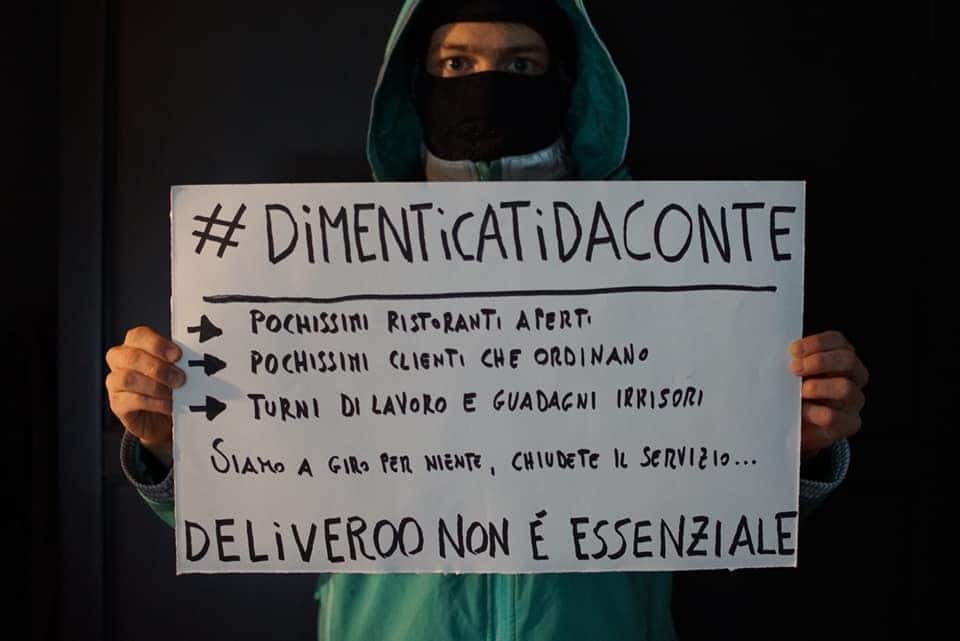 #DiMENTiCATiDACONTE
→ POCHISSIMI RISTORANTI APERTI
→ POCHISSIMI CLIENTI CHE ORDINANO
→ TURNI DI LAVORO E GUADAGNI IRRISORI
SIAMO A GIRO PER NIENTE, CHIUDETE IL SERVIZIO...
DELiVEROO NON É ESSENZIALE